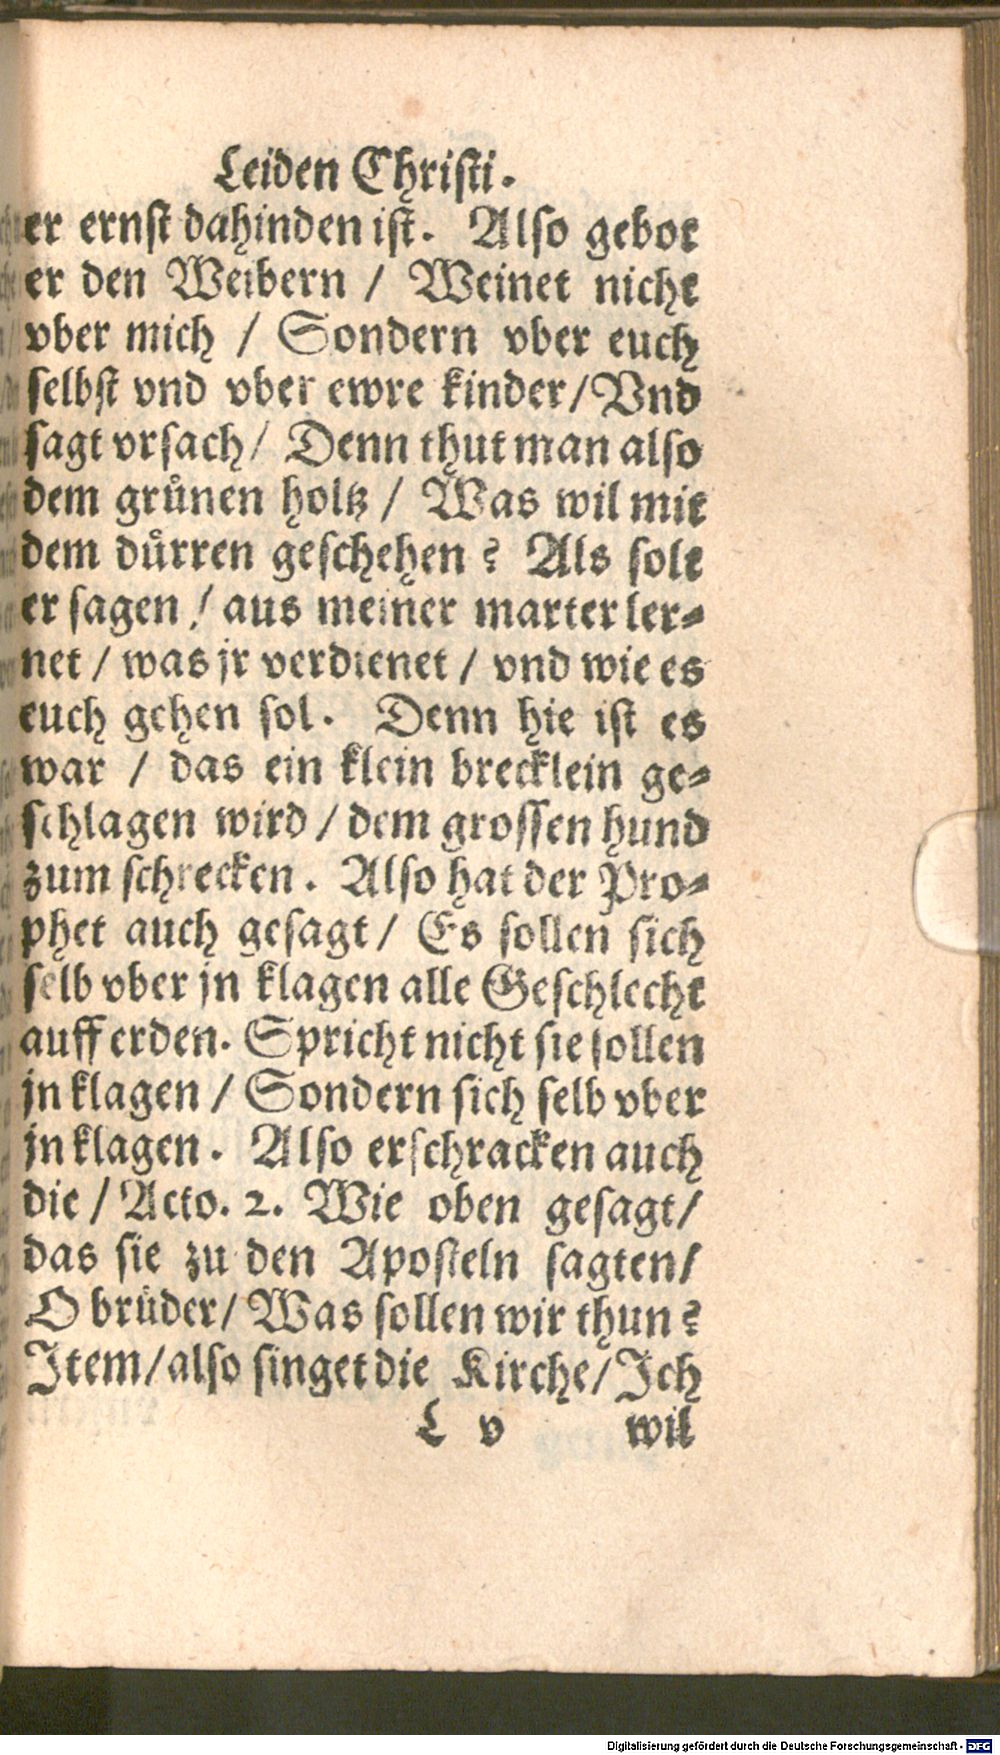 Leiden Christi.
er ernſt dahinden iſt. Alſo gebot
er den Weibern / Weinet nicht
vber mich / Sondern vber euch
ſelbſt vnd vber ewre kinder / Vnd
ſagt vrſach / Denn thut man alſo
dem gruͤnen holtz / Was wil mit
dem duͤrren geſchehen? Als ſolt
er ſagen / aus meiner marter ler⸗
net / was jr verdienet / vnd wie es
euch gehen ſol. Denn hie iſt es
war / das ein klein brecklein ge⸗
ſchlagen wird / dem groſſen hund
zum ſchrecken. Alſo hat der Pro⸗
phet auch geſagt / Es ſollen ſich
ſelb vber jn klagen alle Geſchlecht
auff erden. Spricht nicht ſie ſollen
jn klagen / Sondern ſich ſelb vber
jn klagen. Alſo erſchracken auch
die / Acto. 2. Wie oben geſagt /
das ſie zu den Apoſteln ſagten /
O bruͤder / Was ſollen wir thun?
Item / alſo ſinget die Kirche / Ich
L v wil
Digitalisierung gefördert durch die Deutsche Forschungsgemeinschaft - DFG